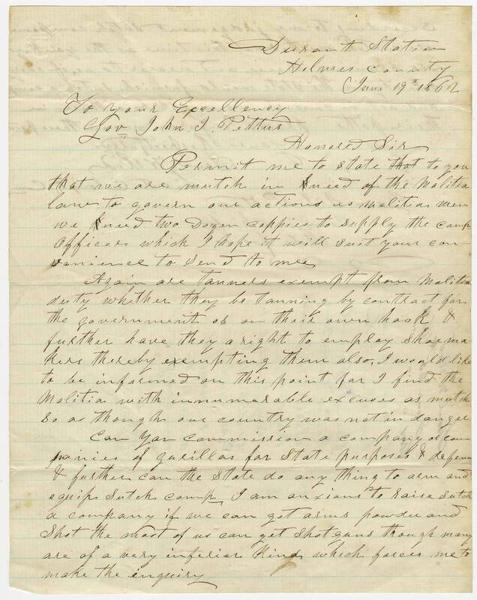 Durant Station
Holmes County
June 19th 1862
To Your Excellency
Gov John J. Pettus
Honored Sir
Permit me to State that to you
that we are mutch in kneed of the Malitia
law to govern our actions as malitia men
we kneed two Dozen coppies to supply the comp
Officers which I hope it will suit your con
venience to Send to me
Again are tanners exempt from Malitia
duty whether they be tanning by contract for
the government or on their own hook &
further have they a right to employ shoema
kers thereby exempting them also, I would like
to be informed on this point for I find the
Malitia with innumarable excuses as mutch
So as though our country was not in danger
Can You commission a company or com
panies of gurillas for State purposes & defence
& further can the State do any thing to arm and
equip Sutch comp. I am anxians to raise Sutch
a company if we can got arms powder and
Shot the most of us can get Shot guns though many
are of a very inferior Kind, which forces me to
make the enquiry